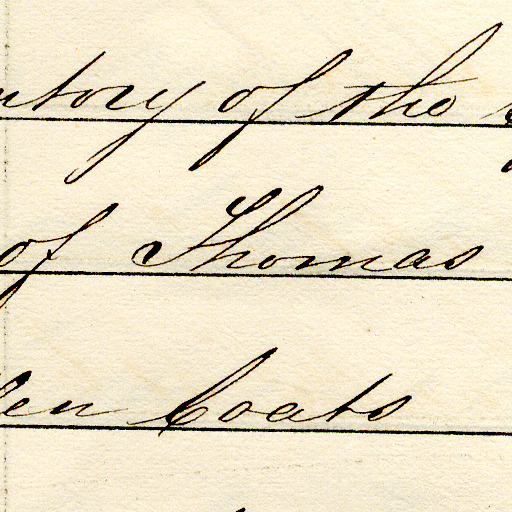 ntory of the
of Thomas
en Coats